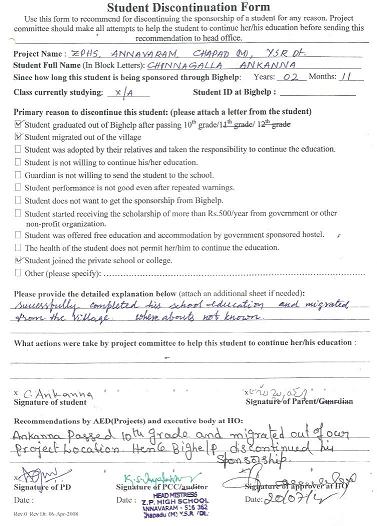 Student Discontinuation Form
Use this form to recommend for discontinuing the sponsorship of a student for any reason. Project
committee should make all attempts to help the student to continue her/his education before sending this
recommendation to head office.
Project Name : ZPHS, ANNAVARAM, CHAPAD (M), YSR Dt.
Student Full Name (In Block Letters): CHINNAGALLA ANKANNA
Since how long this student is being sponsored through Bighelp: Years: 02 Months: 11
Class currently studying: X/A Student ID at Bighelp :
Primary reason to discontinue this student: (please attach a letter from the student)
Student graduated out of Bighelp after passing 10th grade/11th grade/ 12th grade
Student migrated out of the village
Student was adopted by their relatives and taken the responsibility to continue the education.
Student is not willing to continue his/her education.
Guardian is not willing to send the student to the school.
Student performance is not good even after repeated warnings.
Student does not want to get the sponsorship from Bighelp.
Student started receiving the scholarship of more than Rs.500/year from government or other
non-profit organization.
Student was offered free education and accommodation by government sponsored hostel.
The health of the student does not permit her/him to continue the education.
Student joined the private school or college.
Other (please specify):
Please provide the detailed explanation below (attach an additional sheet if needed):
Successfully completed his school education and migrated
from the village. where abouts not known.
What actions were take by project committee to help this student to continue her/his education :
x C. Ankanna
Signature of student Signature of Parent/Guardian
Recommendations by AED(Projects) and executive body at HO:
Ankanna Passed 10th grade and migrated out of our
Project Location Hence Bighelp discontinued his
Sponsorship.
Signature of PD Signature of PCC/auditor Signature of approver at HO
Date : Date : Date: 20/07/12
HEAD MISTRESS
Z.P. HIGH SCHOOL
ANNAVARAM - 516 362
Chapadu (M) Y.S.R. Dt.
Rev.0 Rev Dt: 06-Apr-2008